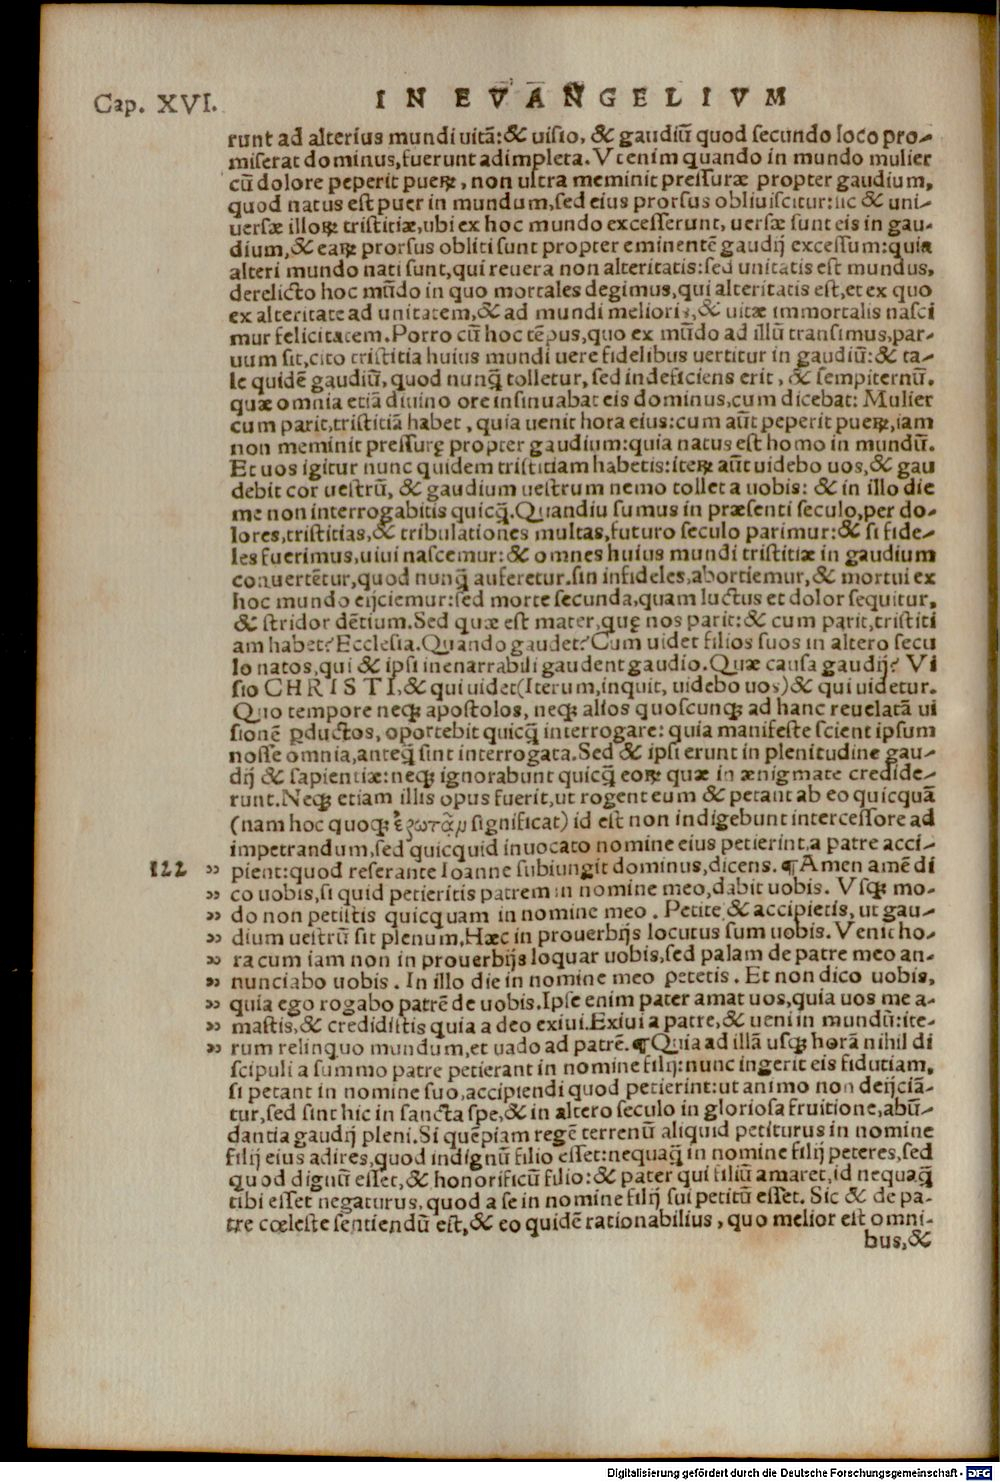 Cap. XVI. IN EVANGELIVM
runt ad alterius mundi uitã: & uisio, & gaudiũ quod secundo loco pro-
miserat dominus, fuerunt adimpleta. Vt enim quando in mundo mulier
cũ dolore peperit pueꝝ, non ultra meminit pressuræ propter gaudium,
quod natus est puer in mundum, sed eius prorsus obliuiscitur: sic & uni-
uersæ illoꝝ tristitiæ, ubi ex hoc mundo excesserunt, uersæ sunt eis in gau-
dium, & eaꝝ prorsus obliti sunt propter eminentẽ gaudij excessum: quia
alteri mundo nati sunt, qui reuera non alteritatis: sed unitatis est mundus,
derelicto hoc mũdo in quo mortales degimus, qui alteritatis est, et ex quo
ex alteritate ad unitatem, & ad mundi melioris, & uitæ immortalis nasci
mur felicitatem. Porro cũ hoc tẽpus, quo ex mũdo ad illũ transimus, par-
uum sit, cito tristitia huius mundi uere fidelibus uertitur in gaudiũ: & ta-
le quidẽ gaudiũ, quod nunq̃ tolletur, sed indeficiens erit, & sempiternũ.
quæ omnia etiã diuino ore insinuabat eis dominus, cum dicebat: Mulier
cum parit, tristitiã habet, quia uenit hora eius: cum aũt peperit pueꝝ, iam
non meminit pressurę propter gaudium: quia natus est homo in mundũ.
Et uos igitur nunc quidem tristitiam habetis: iteꝝ aũt uidebo uos, & gau
debit cor uestrũ, & gaudium uestrum nemo tollet a uobis: & in illo die
me non interrogabitis quicq̃. Quandiu sumus in præsenti seculo, per do-
lores, tristitias, & tribulationes multas, futuro seculo parimur: & si fide-
les fuerimus, uiui nascemur: & omnes huius mundi tristitiæ in gaudium
conuertẽtur, quod nunq̃ auferetur. sin infideles, abortiemur, & mortui ex
hoc mundo eijciemur: sed morte secunda, quam luctus et dolor sequitur,
& stridor dẽtium. Sed quæ est mater, quę nos parit: & cum parit, tristiti
am habet? Ecclesia. Quando gaudet? Cum uidet filios suos in altero secu
lo natos, qui & ipsi inenarrabili gaudent gaudio. Quæ causa gaudij? Vi
sio CHRISTI, & qui uidet (Iterum, inquit, uidebo uos) & qui uidetur.
Quo tempore neqꝫ apostolos, neqꝫ alios quoscunqꝫ ad hanc reuelatã ui
sionẽ ꝑductos, oportebit quicq̃ interrogare: quia manifeste scient ipsum
nosse omnia, anteq̃ sint interrogata. Sed & ipsi erunt in plenitudine gau-
dij & sapientiæ: neqꝫ ignorabunt quicq̃ eoꝝ quæ in ænigmate credide-
runt. Neqꝫ etiam illis opus fuerit, ut rogent eum & petant ab eo quicquã
(nam hoc quoqꝫ ἐρωτᾶν significat) id est non indigebunt intercessore ad
impetrandum, sed quicquid inuocato nomine eius petierint, a patre acci-
122 ,, pient: quod reserante Ioanne subiungit dominus, dicens. ¶ Amen amẽ di
,, co uobis, si quid petieritis patrem in nomine meo, dabit uobis. Vsqꝫ mo-
,, do non petistis quicquam in nomine meo. Petite & accipietis, ut gau-
,, dium uestrũ sit plenum, Hæc in prouerbijs locutus sum uobis. Venit ho-
,, ra cum iam non in prouerbijs loquar uobis, sed palam de patre meo an-
,, nunciabo uobis. In illo die in nomine meo petetis. Et non dico uobis,
,, quia ego rogabo patrẽ de uobis. Ipse enim pater amat uos, quia uos me a-
,, mastis, & credidistis quia a deo exiui. Exiui a patre, & ueni in mundũ: ite-
,, rum relinquo mundum, et uado ad patrẽ. ¶ Quia ad illã usqꝫ horã nihil di
scipuli a summo patre petierant in nomine filij: nunc ingerit eis fiduciam,
si petant in nomine suo, accipiendi quod petierint: ut animo non deijciã-
tur, sed sint hic in sancta spe, & in altero seculo in gloriosa fruitione, abũ-
dantia gaudij pleni. Si quẽpiam regẽ terrenũ aliquid petiturus in nomine
filij eius adires, quod indignũ filio esset: nequaq̃ in nomine filij peteres, sed
quod dignũ esset, & honorificũ filio: & pater qui filiũ amaret, id nequaq̃
tibi esset negaturus, quod a se in nomine filij sui petitũ esset. Sic & de pa-
tre cœleste sentiendũ est, & eo quidẽ rationabilius, quo melior est omni-
bus, &
Digitalisierung gefördert durch die Deutsche Forschungsgemeinschaft - DFG